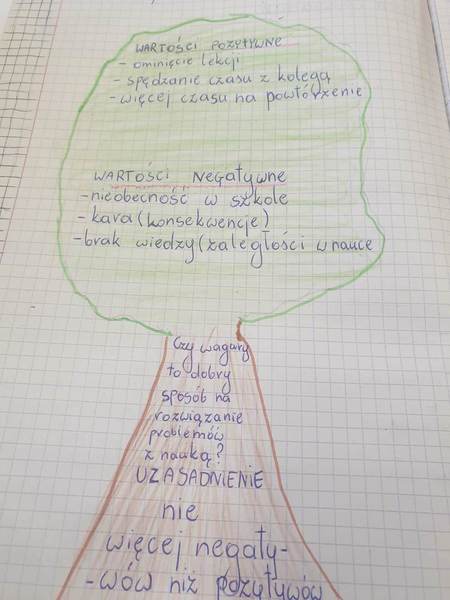 WARTOŚCI POZYTYWNE
- ominięcie lekcji
- spędzanie czasu z kolegą
- więcej czasu na powtórzenie
WARTOŚCI NEGATYWNE
- nieobecność w szkole
- kara (konsekwencje)
- brak wiedzy (zaległości w nauce
Czy wagary
to dobry
sposób na
rozwiązanie
problemów
z nauką?
UZASADNIENIE
nie
więcej negaty-
-wów niż pozytywów